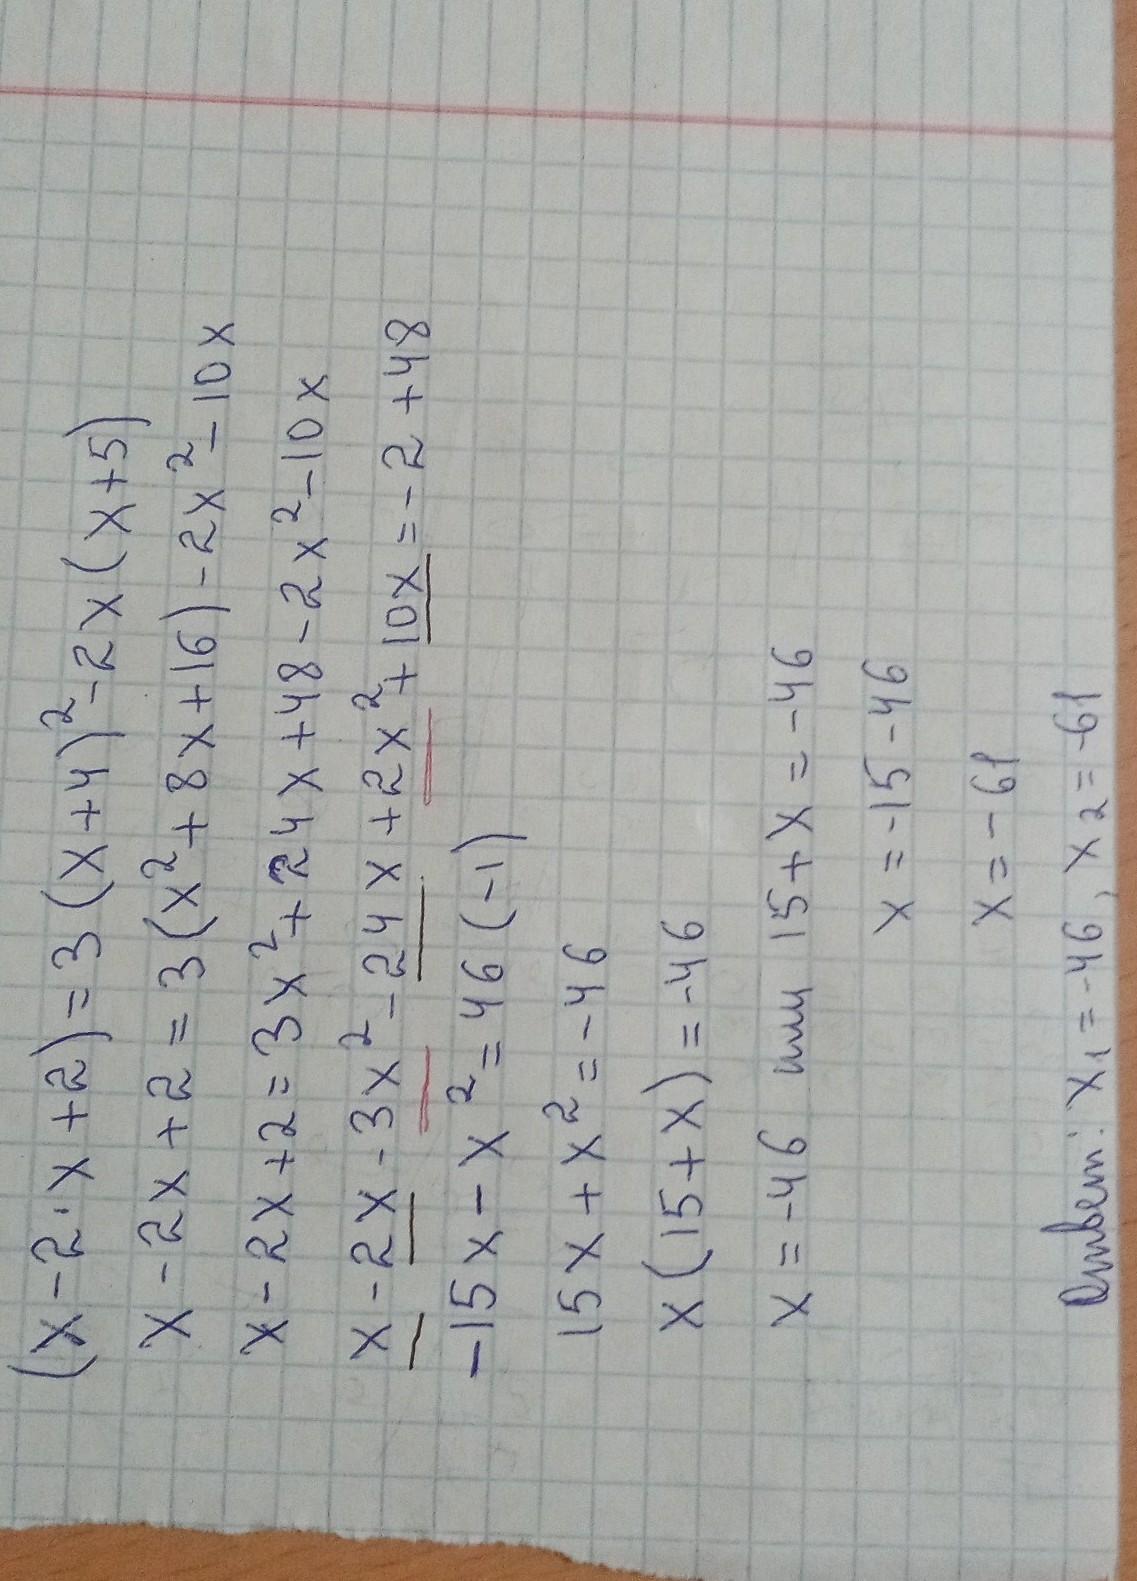 (x-2·x+2)=3(x+4)²-2x(x+5)
x-2x+2=3(x²+8x+16)-2x²-10x
x-2x+2=3x²+24x+48-2x²-10x
x-2x-3x²-24x+2x²+10x=-2+48
-15x-x²=46(-1)
15x+x²=-46
x(15+x)=-46
x=-46 или 15+x=-46
x=-15-46
x=-61
Ответ: x₁=-46, x₂=-61